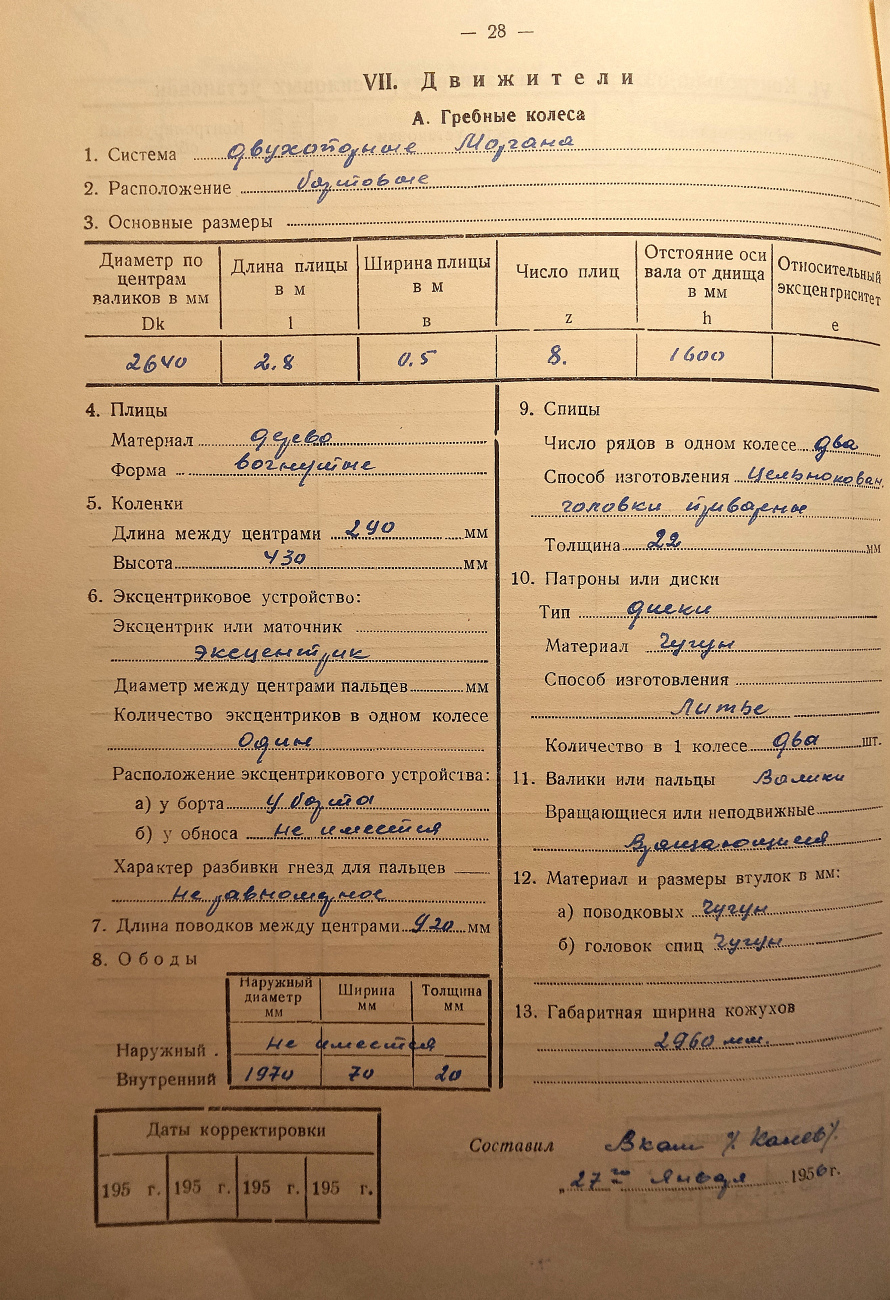 — 28 —
VII. Движители
А. Гребные колеса
1. Система двухопорные Моргана
2. Расположение бортовые
3. Основные размеры
Диаметр по центрам валиков в мм Dk | Длина плицы в м l | Ширина плицы в м в | Число плиц z | Отстояние оси вала от днища в мм h | Относительный эксцентриситет е
2640 | 2.8 | 0.5 | 8. | 1600
4. Плицы
Материал дерево
Форма вогнутые
5. Коленки
Длина между центрами 290 мм
Высота 430 мм
6. Эксцентриковое устройство:
Эксцентрик или маточник
Эксцентрик
Диаметр между центрами пальцев мм
Количество эксцентриков в одном колесе
Один
Расположение эксцентрикового устройства:
а) у борта У борта
б) у обноса Не имеется
Характер разбивки гнезд для пальцев
Не равномерное
7. Длина поводков между центрами 920 мм
8. Ободы
Наружный диаметр мм | Ширина мм | Толщина мм
Наружный . Не имеется
Внутренний 1970 | 70 | 20
9. Спицы
Число рядов в одном колесе два
Способ изготовления Цельнокован.
головки приварные
Толщина 22 мм
10. Патроны или диски
Тип диски
Материал Чугун
Способ изготовления
Литье
Количество в 1 колесе два шт.
11. Валики или пальцы Валики
Вращающиеся или неподвижные
Вращающиеся
12. Материал и размеры втулок в мм:
а) поводковых Чугун
б) головок спиц Чугун
13. Габаритная ширина кожухов
2960 мм.
Даты корректировки
195 г. | 195 г. | 195 г. | 195 г.
Составил /Канев/.
„27 го Января 1956 г.